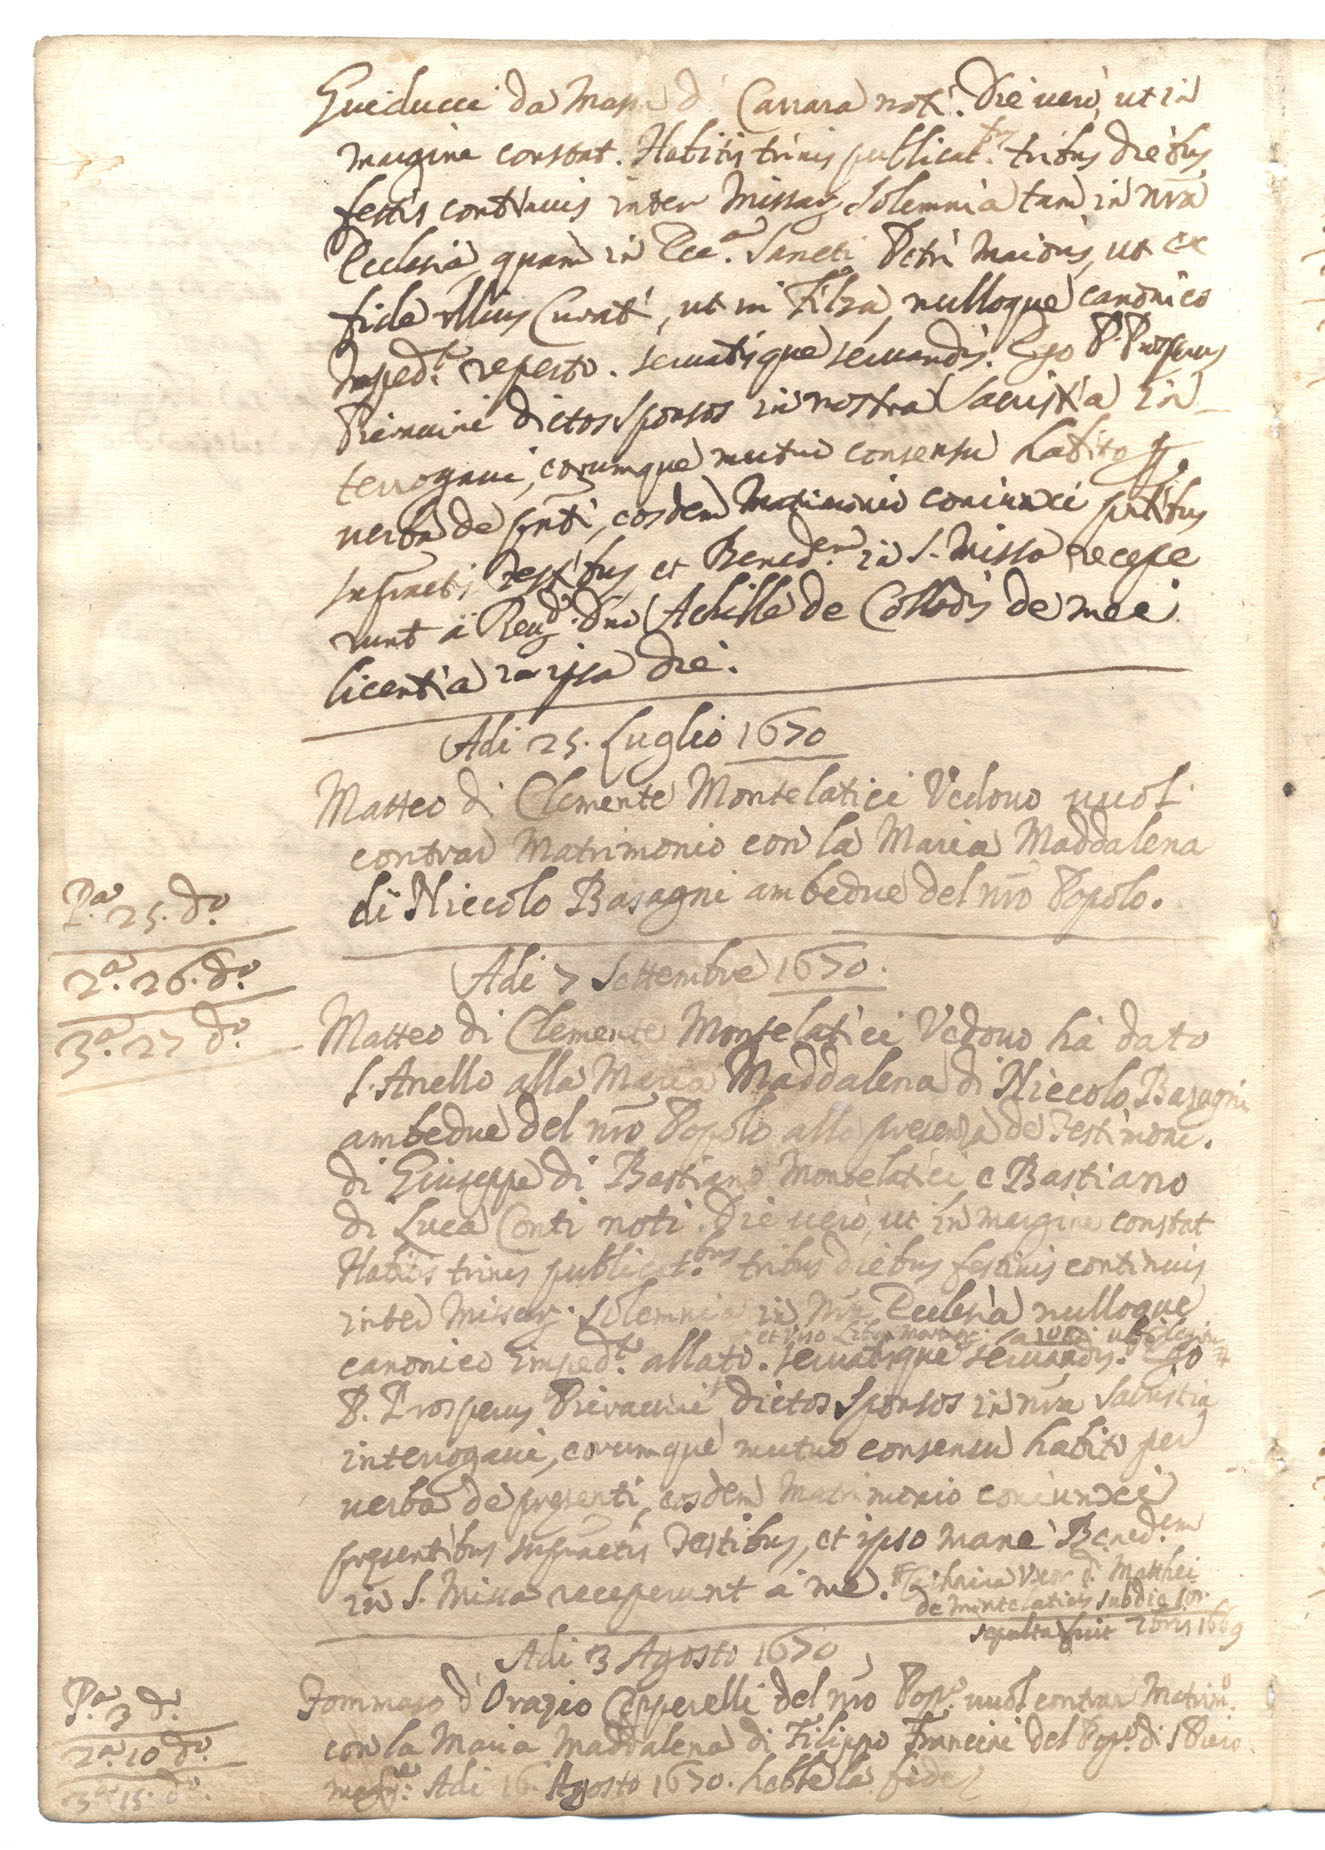 Guiducci da Massa di Carrara noti. Die uero, ut in
margine constat. Habitis trinis publicat.bus tribus diebus
festis continuis inter Missar. Solemnia tam in nrã
Ecclesia, quam in Ecc.a Sancti Petri Maioris, ut ex
fide illius Curati, ut in Filza, nulloque canonico
Imped.to reperto. seruatisque seruandis. Ego P. Prosperus
Pieraccini dictos Sponsos in nostra Sacristia in-
terrogaui, eorumque mutuo consensu habito p.
uerba de pñti, eosdem Matrimonio coniunxi pñtibus
infractis Testibus, et Bened.em in S. Missa recepe
runt à Reu.do Dño Achille de Collodis de mea
licentia in ipsa die.
Adi 25. Luglio 1670
Matteo di Clemente Montelatici Vedouo uuol
contrar Matrimonio con la Maria Maddalena
di Niccolo Basagni ambedue del nrõ Popolo.
P.a 25. d.o
2.a 26. d.o
3.a 27 d.o
Adi 7 Settembre 1670.
Matteo di Clemente Montelatici Vedouo hà dato
l'Anello alla Maria Maddalena di Niccolo Basagni
ambedue del nrõ Popolo alla presenza de Testimoni.
di Giuseppe di Bastiano Montelatici e Bastiano
di Luca Conti noti. Die uero, ut in margine constat
Habitis trinis publicat.bus tribus diebus festiuis continuis
inter Missar. Solemnia in Nrã Ecclesia nulloque
et uiso Libro Mortuor.
canonico imped.to allato. seruatisque seruandis. Ego #
P. Prosperus Pieraccini dictos Sponsos in nrã Sacristia
interrogaui, eorumque mutuo consensu habito per
uerba de presenti, eosdem Matrimonio coniunxi
presentibus infractis Testibus, et ipso mane Bened.em
in S. Missa receperunt à me. # Catharina Uxor d. Matthei
de Montelaticis sub die
sepulta fuit 1669
Adi 3 Agosto 1670
Tommaso d'Orazio Capperelli del nrõ Pop.o uuol contrar Matrim.o
con la Maria Maddalena di Filippo Francini del Pop.o di S Piero
magg.re Adi 16. Agosto 1670. hebbe la fide
P.a 3 d.o
2.a 10 d.o
3.a 15. d.o